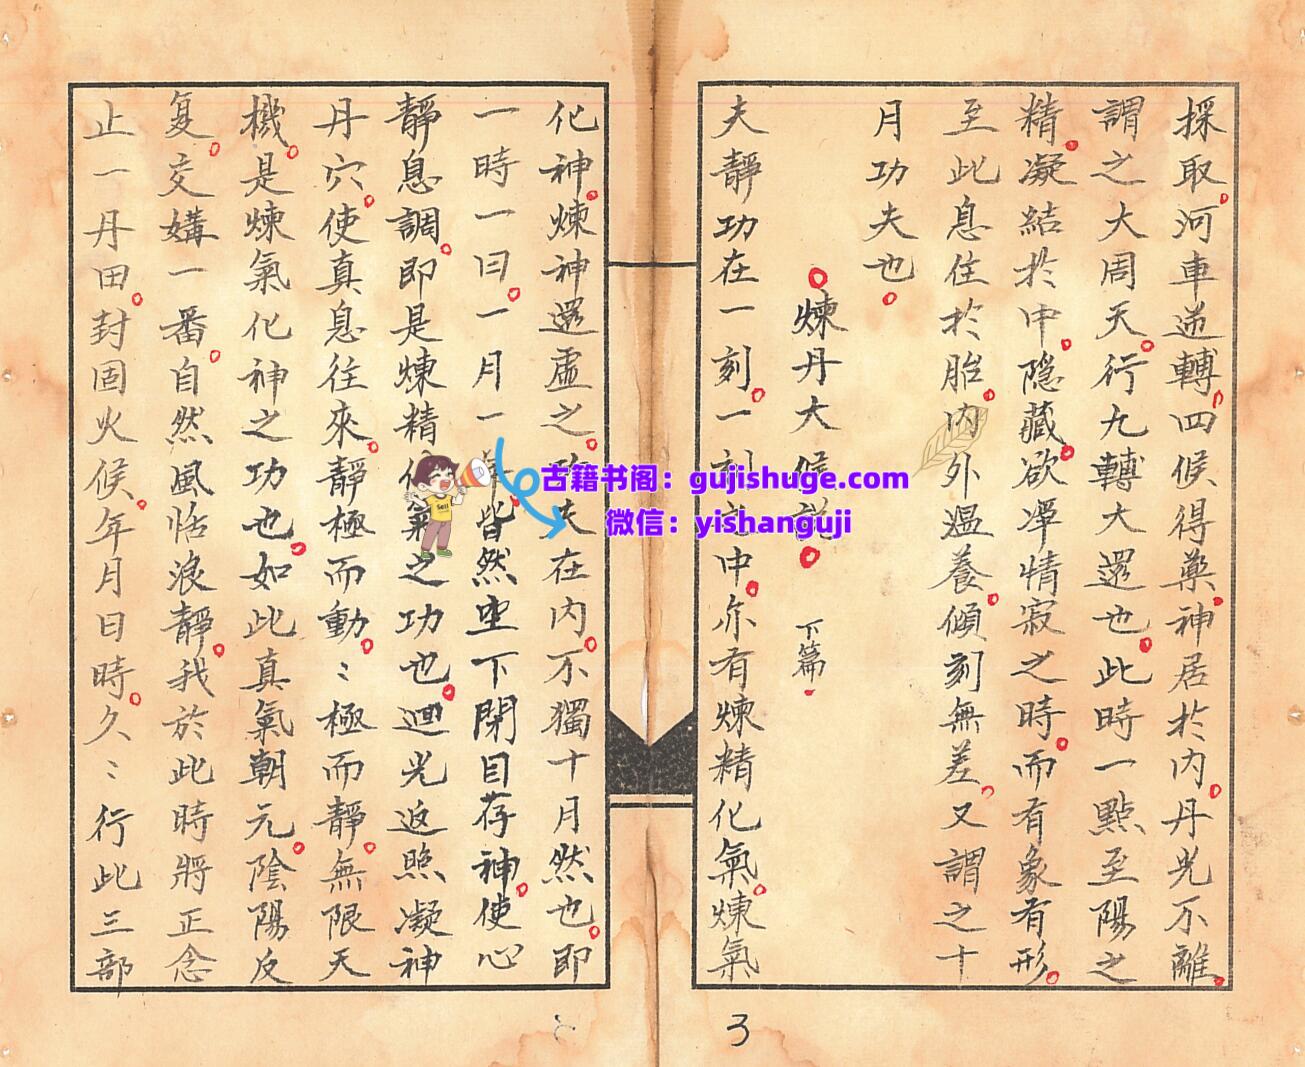 採取。河車遞轉。四候得藥。神居於內。丹光不離。
謂之大周天。行九轉大還也。此時一點至陽之
精。凝結於中。隱藏。欲淨情寂之時。而有象有形。
至此息住於胎。內外溫養。傾刻無差。又謂之十
月功夫也。
煉丹大候說。下篇.
夫靜功在一刻。一刻之中。亦有煉精化氣。煉氣
化神。煉神還虛之。夫在內。不獨十月然也。即
一時一日。一月一年。皆然坐下閉目存神。使心
靜息調。即是煉精化氣之功也。迴光返照凝神
丹穴。使真息往來。靜極而動。:極而靜。無限天
機。是煉氣化神之功也。如此真氣朝元。陰陽反
复。交媾一番。自然風恬浪靜。我於此時將正念
止一丹田。封固火候。年月日時。久:行此三部
3
古籍书阁：gujishuge.com
微信：yishanguji
Sell